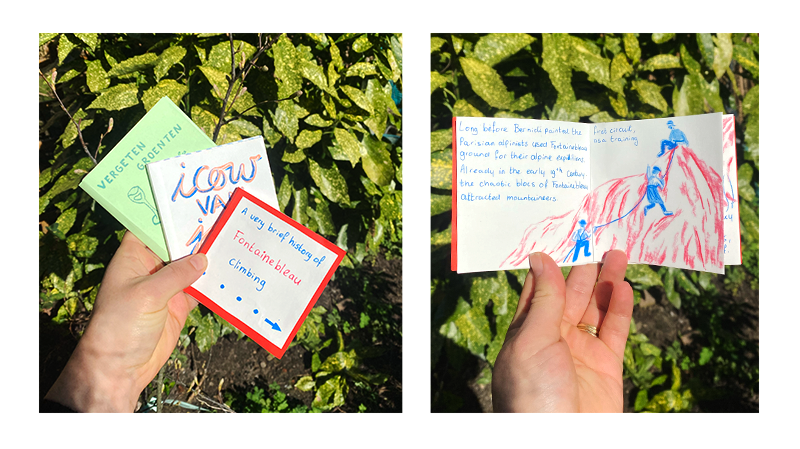 VERGETEN
GROENTEN
icow
VA
A very brief history of
Fontainebleau
climbing
Long before Bernick painted the first circuit,
Parisian alpinists used Fontainebleau as a training
ground for their alpine expeditions.
Already in the early 19th century
the chaotic blocs of Fontainebleau
attracted mountaineers.